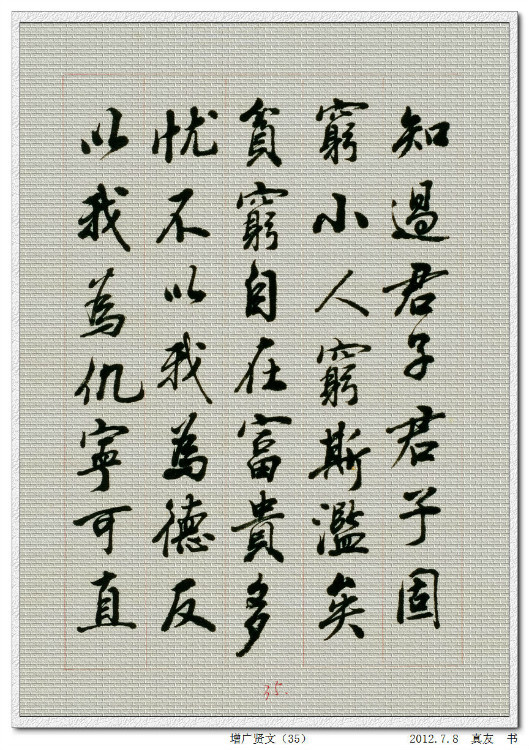 知過君子君子固
窮小人窮斯濫矣
貧窮自在富貴多
忧不以我為德反
以我為仇寧可直
35.
增广贤文（35）
2012.7.8 真友 书